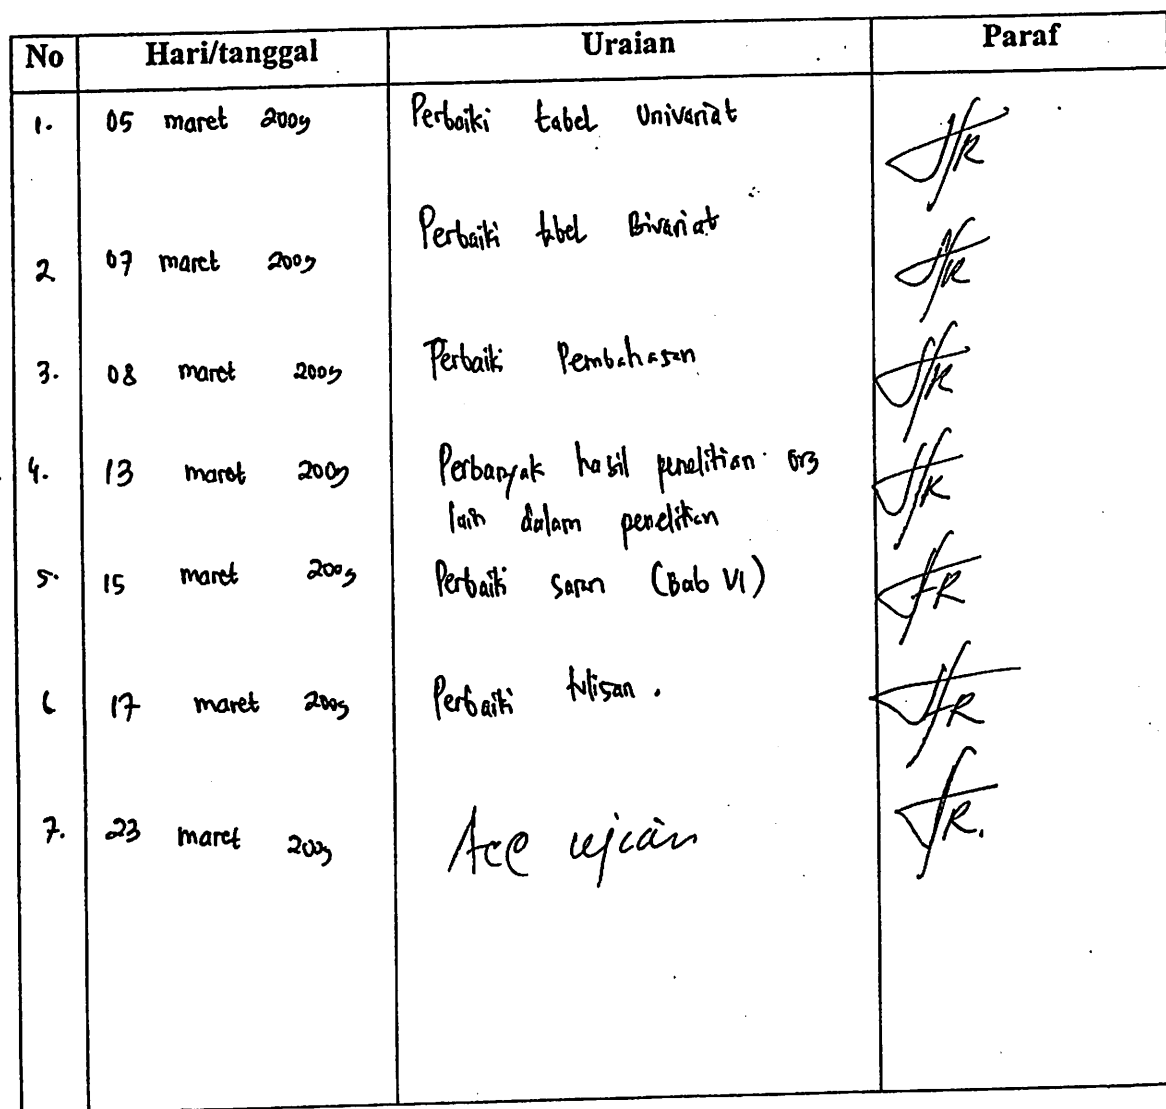 No Hari/tanggal Uraian Paraf
1. 05 maret 2009 Perbaiki tabel Univariat
2 07 maret 2009 Perbaiki tabel Bivariat
3. 08 maret 2009 Perbaiki Pembahasan
4. 13 maret 2009 Perbanyak hasil penelitian org
lain dalam penelitian
5. 15 maret 2009 Perbaiki saran (Bab VI)
6 17 maret 2009 Perbaiki tulisan.
7. 23 maret 2009 Acc ujian